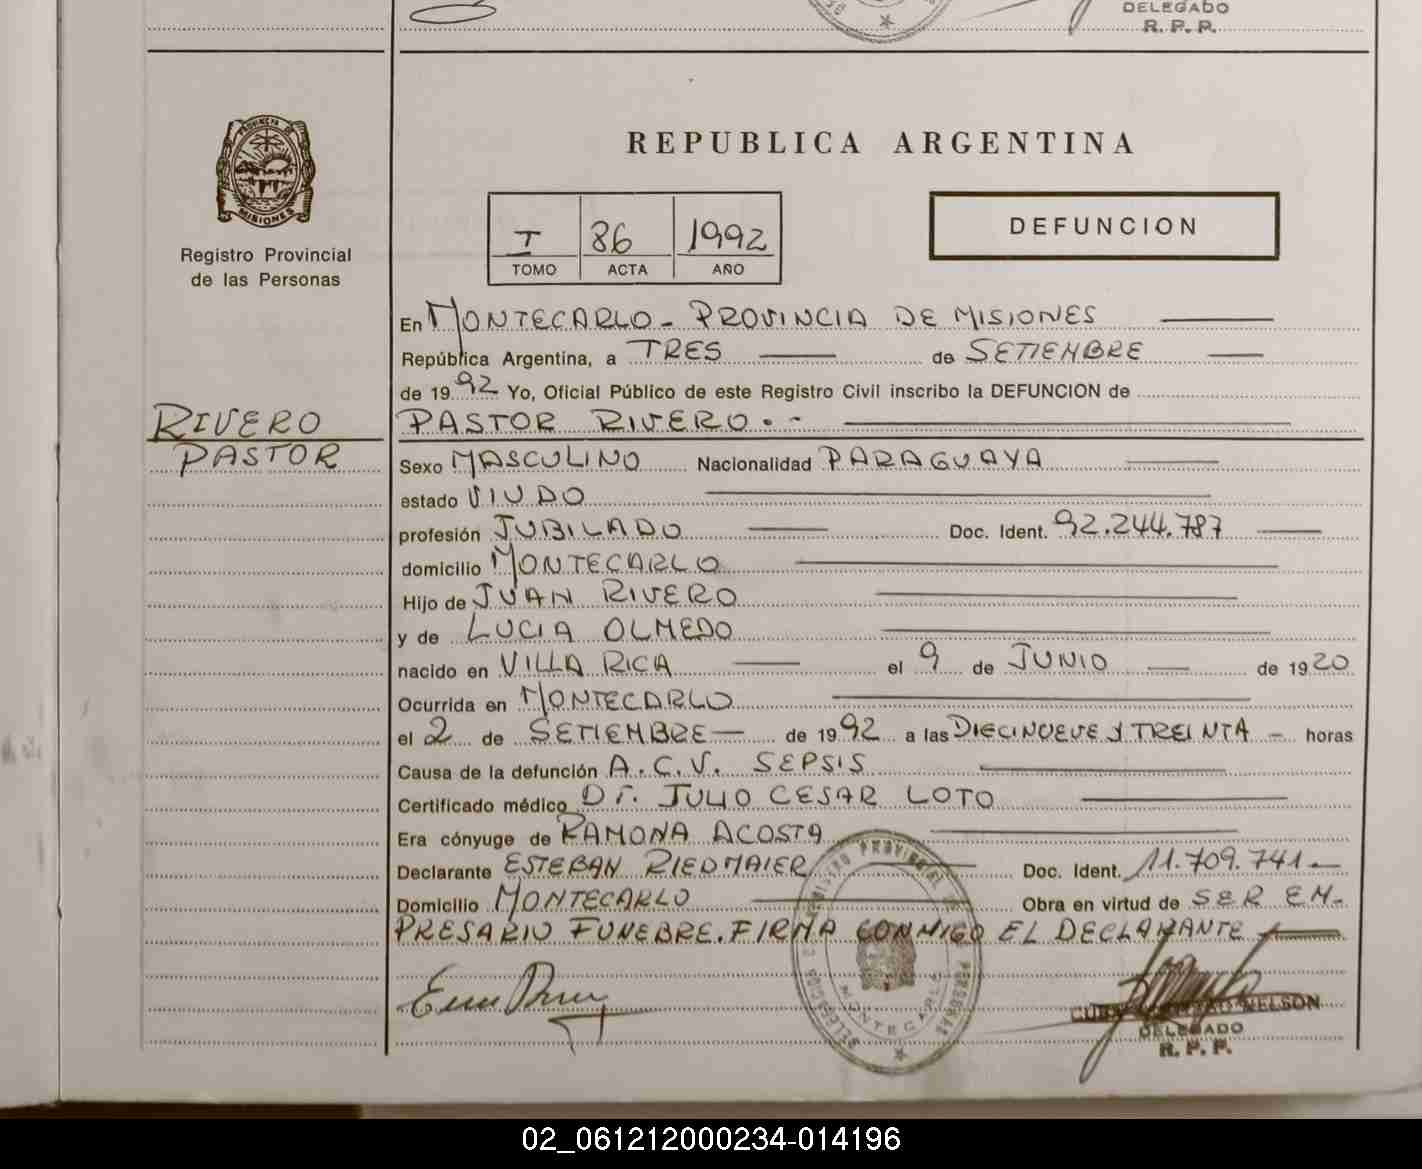 DELEGADO
R. P. P.
PROVINCIA DE
MISIONES
Registro Provincial
de las Personas
REPUBLICA ARGENTINA
I 86 1992
TOMO ACTA AÑO
DEFUNCION
En MONTECARLO - PROVINCIA DE MISIONES
República Argentina, a TRES de SETIEMBRE
de 1992 Yo, Oficial Público de este Registro Civil inscribo la DEFUNCION de
RIVERO
PASTOR RIVERO. -
PASTOR
Sexo MASCULINO Nacionalidad PARAGUAYA
estado VIUDO
profesión JUBILADO Doc. Ident. 92.244.787
domicilio MONTECARLO
Hijo de JUAN RIVERO
y de LUCIA OLMEDO
nacido en VILLA RICA el 9 de JUNIO de 1920
Ocurrida en MONTECARLO
el 2 de SETIEMBRE de 1992 a las DIECINUEVE Y TREINTA - horas
Causa de la defunción A.C.V. SEPSIS
Certificado médico Dr. JULIO CESAR LOTO
Era cónyuge de RAMONA ACOSTA
Declarante ESTEBAN RIEDMAIER Doc. Ident. 11.709.741
Domicilio MONTECARLO Obra en virtud de SER EM-
PRESARIO FUNEBRE. FIRMA CONMIGO EL DECLARANTE
REGISTRO PROVINCIAL DE PERSONAS
MONTECARLO
NELSON
DELEGADO
R. P. P.
02_061212000234-014196